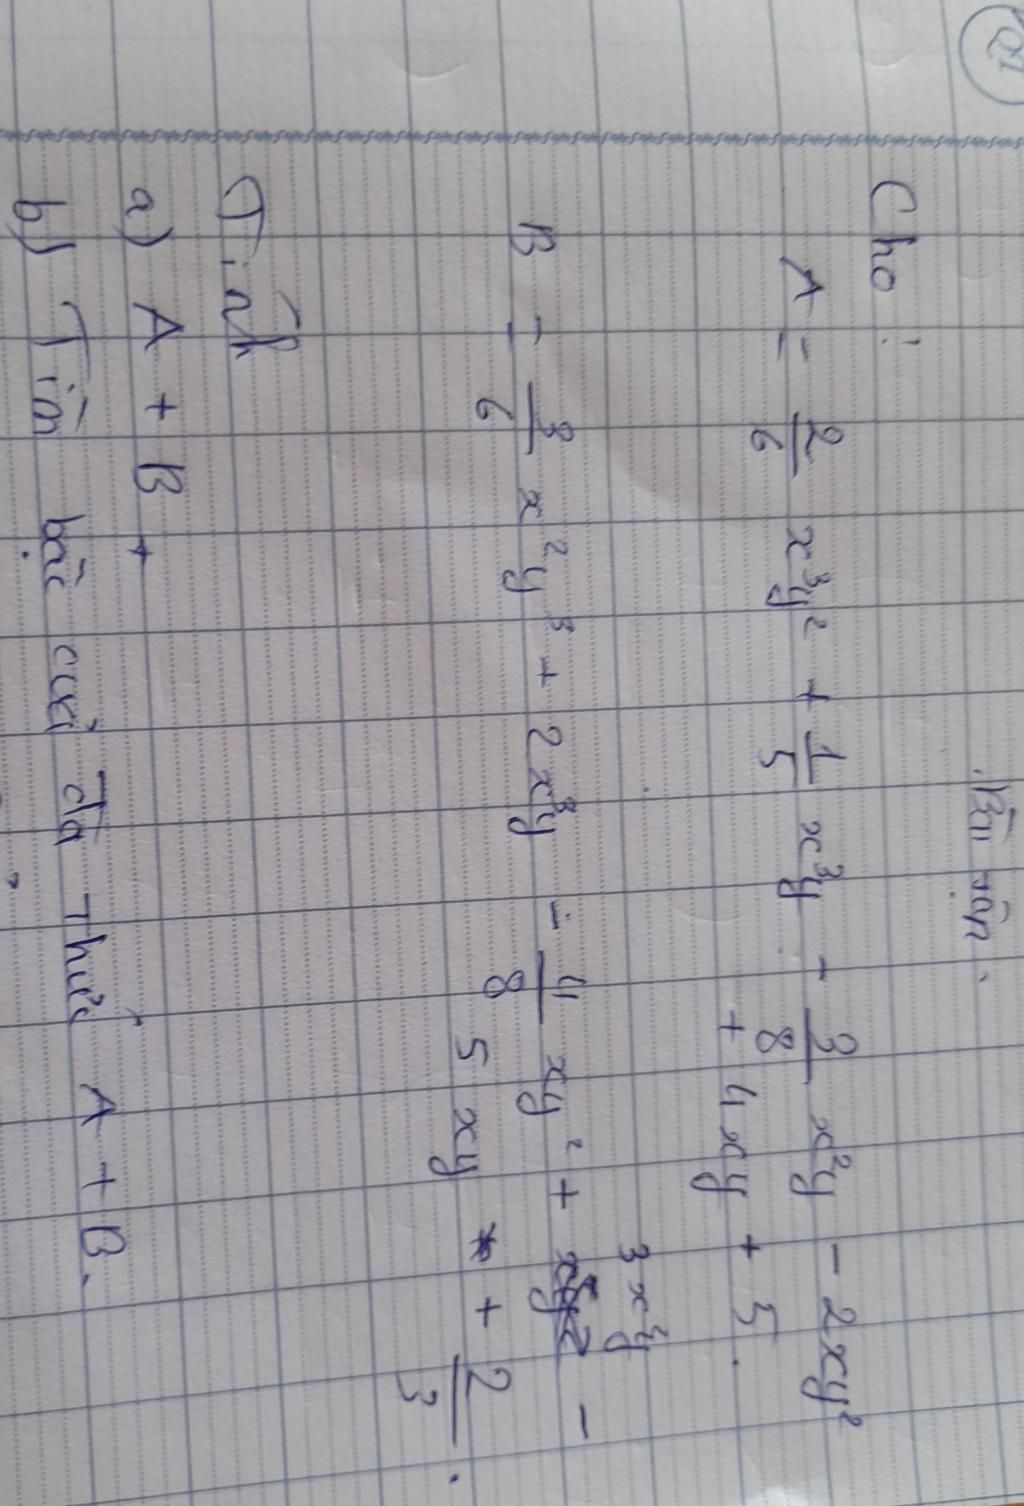 Bài tập.
Cho:
A = 2/6 x³y² + 1/5 x³y - 3/8 x²y - 2xy²
+ 4xy + 5.
3x²y
B = 3/6 x²y³ + 2x³y - 4/8 xy² + -
5xy + 2/3.
Tính
a) A + B
b) Tìm bậc của đa thức A + B.